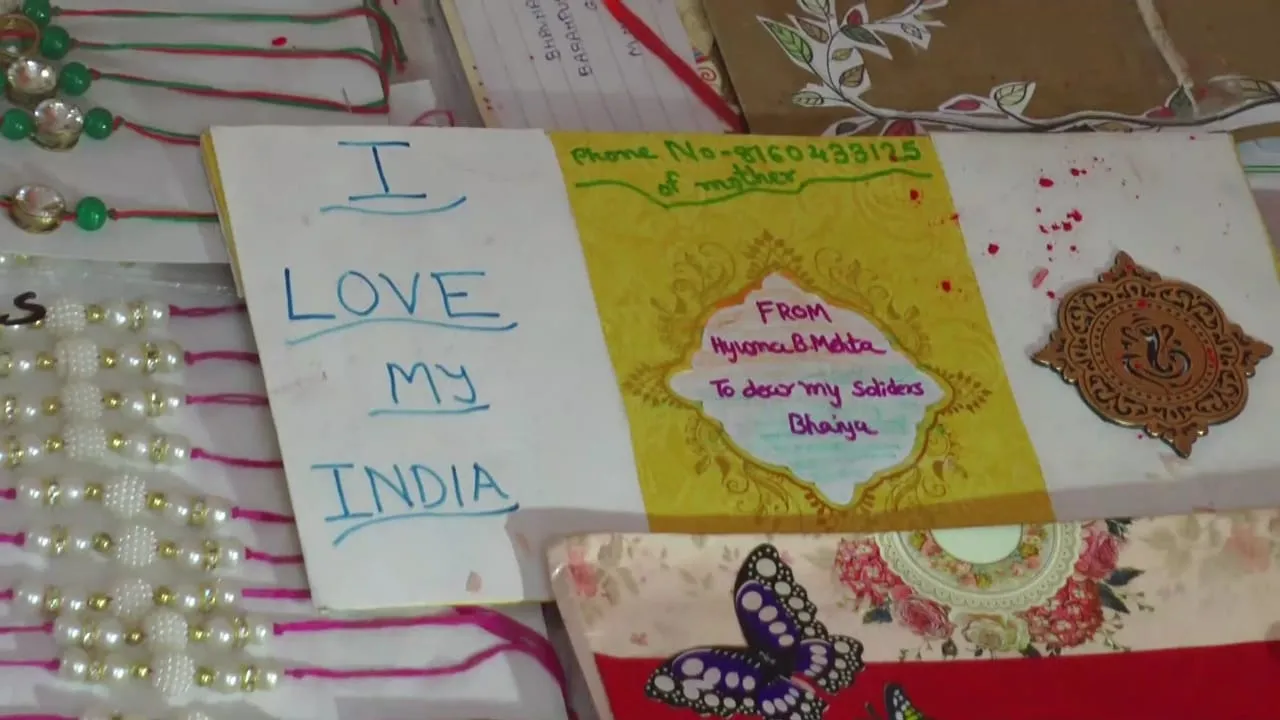 I
LOVE
MY
INDIA
Phone No-8160433125
of mother
FROM
B. Mehta
To dear my Soliders
Bhaiya
S